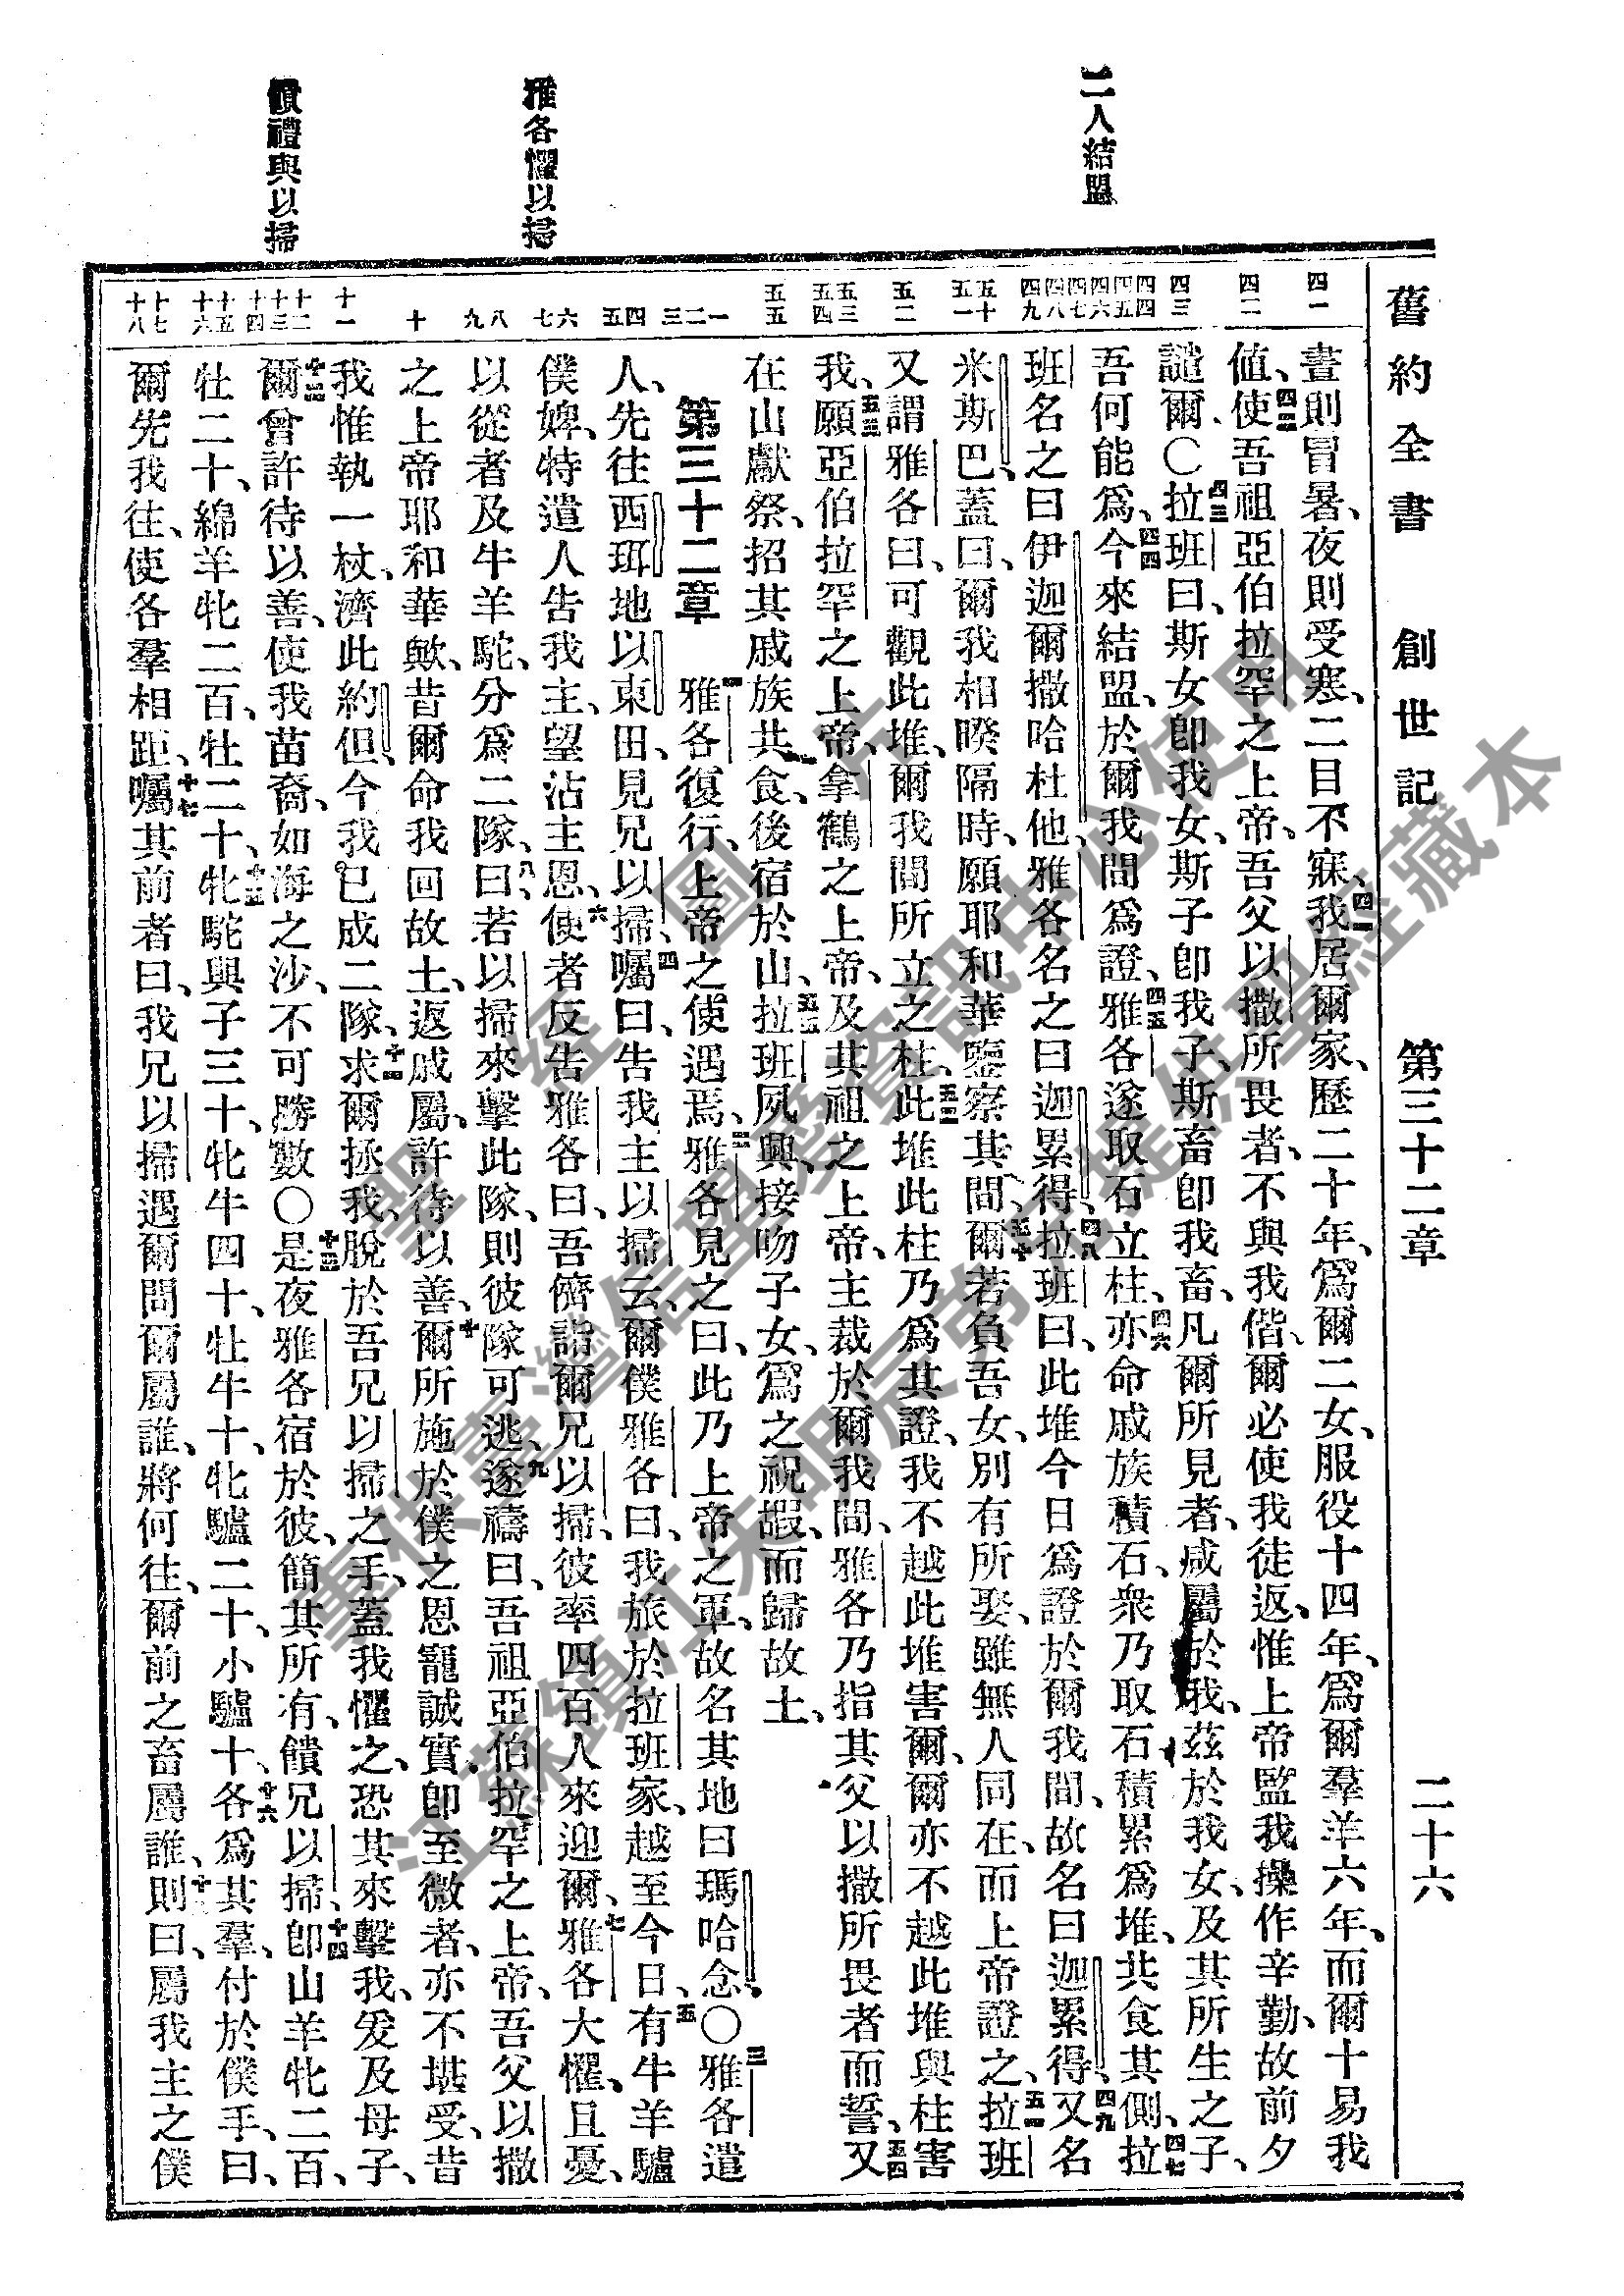 舊約全書 創世記 第三十二章 二十六
二人結盟
雅各懼以掃
饋禮與以掃
四一
四二
四三
四四 四五 四六
四七 四八 四九
五十 五一
五二
五三 五四
五五
一 二 三
四 五
六 七
八 九
十
十一
十二 十三 十四
十五 十六
十七 十八
晝則冒暑、夜則受寒、二目不寐、四一我居爾家、歷二十年、爲爾二女、服役十四年、爲爾羣羊六年、而爾十易我
値、四二使吾祖亞伯拉罕之上帝、吾父以撒所畏者、不與我偕、爾必使我徒返、惟上帝監我操作辛勤、故前夕
譴爾、○四三拉班曰、斯女卽我女、斯子卽我子、斯畜卽我畜、凡爾所見者、咸屬於我、茲於我女、及其所生之子、
吾何能爲、四四今來結盟、於爾我間爲證、四五雅各遂取石立柱、四六亦命戚族積石、衆乃取石、積累爲堆、共食其側、四七拉
班名之曰伊迦爾撒哈杜他、雅各名之曰迦累得、四八拉班曰、此堆今日爲證於爾我間、故名曰迦累得、四九又名
米斯巴、蓋曰、爾我相暌隔時、願耶和華鑒察其間、五十爾若負吾女、別有所娶、雖無人同在、而上帝證之、五一拉班
又謂雅各曰、可觀此堆、爾我間所立之柱、五二此堆此柱乃爲其證、我不越此堆害爾、爾亦不越此堆與柱害
我、五三願亞伯拉罕之上帝、拿鶴之上帝、及其祖之上帝、主裁於爾我間、雅各乃指其父以撒所畏者而誓、五四又
在山獻祭、招其戚族共食、後宿於山、五五拉班夙興、接吻子女、爲之祝嘏、而歸故土、
第三十二章 一雅各復行、上帝之使遇焉、二雅各見之曰、此乃上帝之軍、故名其地曰瑪哈念○三雅各遣
人、先往西珥地以東田、見兄以掃、四囑曰、告我主以掃云、爾僕雅各曰、我旅於拉班家、越至今日、五有牛羊驢
僕婢、特遣人告我主、望沾主恩、六使者反告雅各曰、吾儕詣爾兄以掃、彼率四百人來迎爾、七雅各大懼、且憂、
以從者及牛羊駝、分爲二隊、八曰、若以掃來擊此隊、則彼隊可逃、九遂禱曰、吾祖亞伯拉罕之上帝、吾父以撒
之上帝耶和華歟、昔爾命我回故土、返戚屬、許待以善、十爾所施於僕之恩寵誠實、卽至微者、亦不堪受、昔
我惟執一杖、濟此約但、今我已成二隊、十一求爾拯我、脫於吾兄以掃之手、蓋我懼之、恐其來擊我、爰及母子、
十二爾曾許待以善、使我苗裔、如海之沙、不可勝數○十三是夜雅各宿於彼、簡其所有、饋兄以掃、十四卽山羊牝二百、
牡二十、綿羊牝二百、牡二十、十五牝駝與子三十、牝牛四十、牡牛十、牝驢二十、小驢十、十六各爲其羣、付於僕手、曰、
爾先我往、使各羣相距、十七囑其前者曰、我兄以掃遇爾問爾屬誰、將何往、爾前之畜屬誰、十八則曰、屬我主之僕
聖經圖片
專供臺灣信望愛資訊中心使用
江蘇鎭江朱明辰弟兄提供聖經藏本